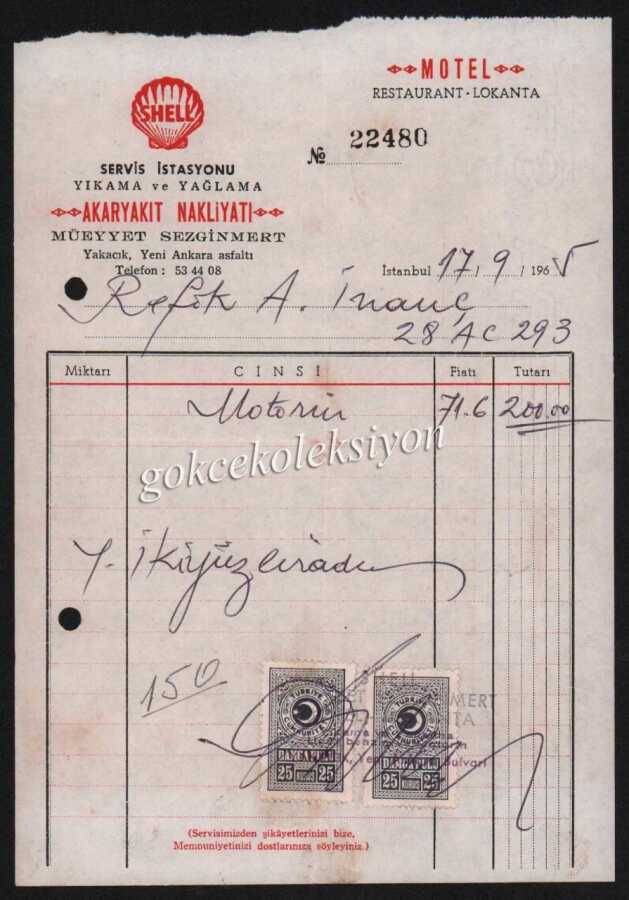 MOTEL
RESTAURANT - LOKANTA
SHELL
№ 22480
SERVİS İSTASYONU
YIKAMA ve YAĞLAMA
AKARYAKIT NAKLİYATI
MÜEYYET SEZGİNMERT
Yakacık, Yeni Ankara asfaltı
Telefon : 53 44 08
İstanbul 17 / 9 / 1965
Refik A. İnanç
28 AC 293
Miktarı CİNSİ Fiatı Tutarı
Motorin 71.6 200.00
gokcekoleksiyon
Y. İkiyüzliradır
150
TÜRKİYE CUMHURİYETİ
DAMGA PULU
25 KURUŞ 25
TÜRKİYE CUMHURİYETİ
DAMGA PULU
25 KURUŞ 25
MERT
Bulvarı
(Servisimizden şikâyetlerinizi bize,
Memnuniyetinizi dostlarınıza söyleyiniz.)